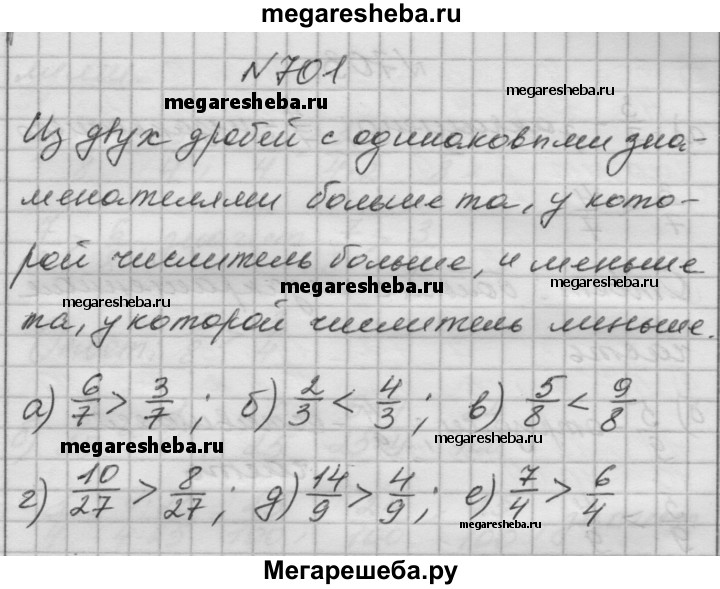 megaresheba.ru
№701
megaresheba.ru
megaresheba.ru
Из двух дробей с одинаковыми зна-
менателями больше та, у кото-
рой числитель больше, и меньше
megaresheba.ru
megaresheba.ru
megaresheba.ru
та, у которой числитель меньше.
а) 6/7 > 3/7 ; б) 2/3 < 4/3 ; в) 5/8 < 9/8
megaresheba.ru
megaresheba.ru
г) 10/27 > 8/27 ; д) 14/9 > 4/9 ; е) 7/4 > 6/4
megaresheba.ru
Мегарешеба.ру